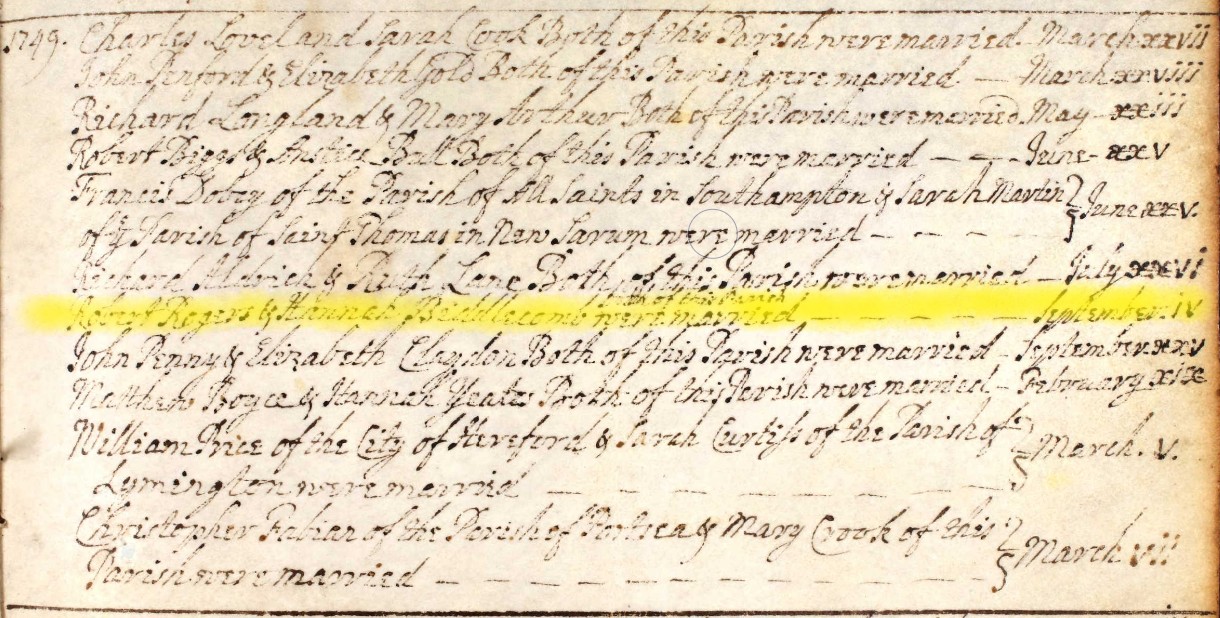 1749. Charles Lovel and Sarah Cook Both of this Parish were married March xxvii
John Penford & Elizabeth Gold Both of this Parish were married — March xxviii
Richard Longland & Mary Arthur Both of this Parish were married May xxiii
Robert Biggs & Anstice Ball Both of this Parish were married — — June xxv
Francis Dobey of the Parish of All Saints in Southampton & Sarah Martin
of ye Parish of Saint Thomas in New Sarum were married — — — — June xxv.
Richard Aldrich & Ruth Lane Both of this Parish were married — July xxxi
both of this Parish
Robert Rogers & Hannah Biddlecomb were married — — — — — September iv
John Penny & Elizabeth Claydon Both of this Parish were married — September xxiv
Matthew Boyce & Hannah Yeates Both of this Parish were married — February xix
William Price of the City of Hereford & Sarah Curtiss of the Parish of
Lymington were married — — — — — — — March. v.
Christopher Fabian of the Parish of Portsea & Mary Crook of this
Parish were married — — — — — — — — — March vii